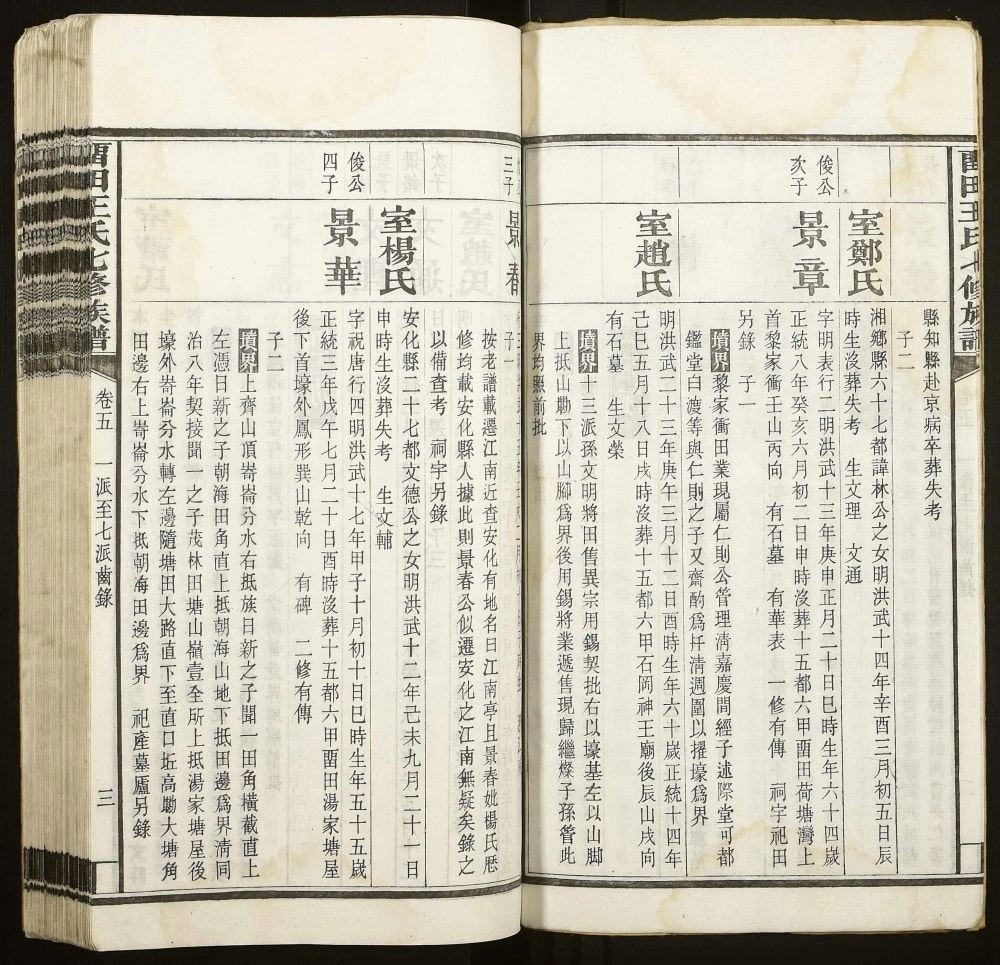 畱田王氏七修族譜
縣知縣赴京病卒葬失考
子二
室鄭氏
湘鄉縣六十七都諱林公之女明洪武十四年辛酉三月初五日辰
時生沒葬失考　生文理　文通
俊公
次子
景章
字明表行二明洪武十三年庚申正月二十日巳時生年六十四歲
正統八年癸亥六月初二日申時沒葬十五都六甲畱田荷塘灣上
首黎家衝壬山丙向　有石墓　有華表　一修有傳　祠字祀田
另錄　子一
墳界黎家衝田業現屬仁則公管理清嘉慶間經子述際堂可都
鑑堂白渡等與仁則之子又齋酌為扦清週圍以擢壕為界
室趙氏
明洪武二十三年庚午三月十二日酉時生年六十歲正統十四年
己巳五月十八日戌時沒葬十五都六甲石岡神王廟後辰山戌向
有石墓　生文榮
墳界十三派孫文明將田售異宗用錫契批右以壕基左以山脚
上抵山勘下以山腳為界後用錫將業遞售現歸繼燦子孫管此
界均照前批
三子
景春
子一
按老譜載遷江南近查安化有地名曰江南亭且景春妣楊氏歷
修均載安化縣人據此則景春公似遷安化之江南無疑矣錄之
以備查考　祠宇另錄
室楊氏
安化縣二十七都文德公之女明洪武十二年己未九月二十一日
申時生沒葬失考　生文輔
俊公
四子
景華
字祝唐行四明洪武十七年甲子十月初十日巳時生年五十五歲
正統三年戊午七月二十日酉時沒葬十五都六甲畱田湯家塘屋
後下首壕外鳳形巽山乾向　有碑　二修有傳
子二
墳界上齊山頂嵜崙分水右抵族日新之子聞一田角橫截直上
左憑日新之子朝海田角直上抵朝海山地下抵田邊為界清同
治八年契接聞一之子茂林田塘山嶺壹全所上抵湯家塘屋後
壕外嵜崙分水轉左邊隨塘田大路直下至直口坵高勘大塘角
田邊右上嵜崙分水下抵朝海田邊為界　祀產墓廬另錄
畱田王氏七修族譜
卷五
一派至七派齒錄
三